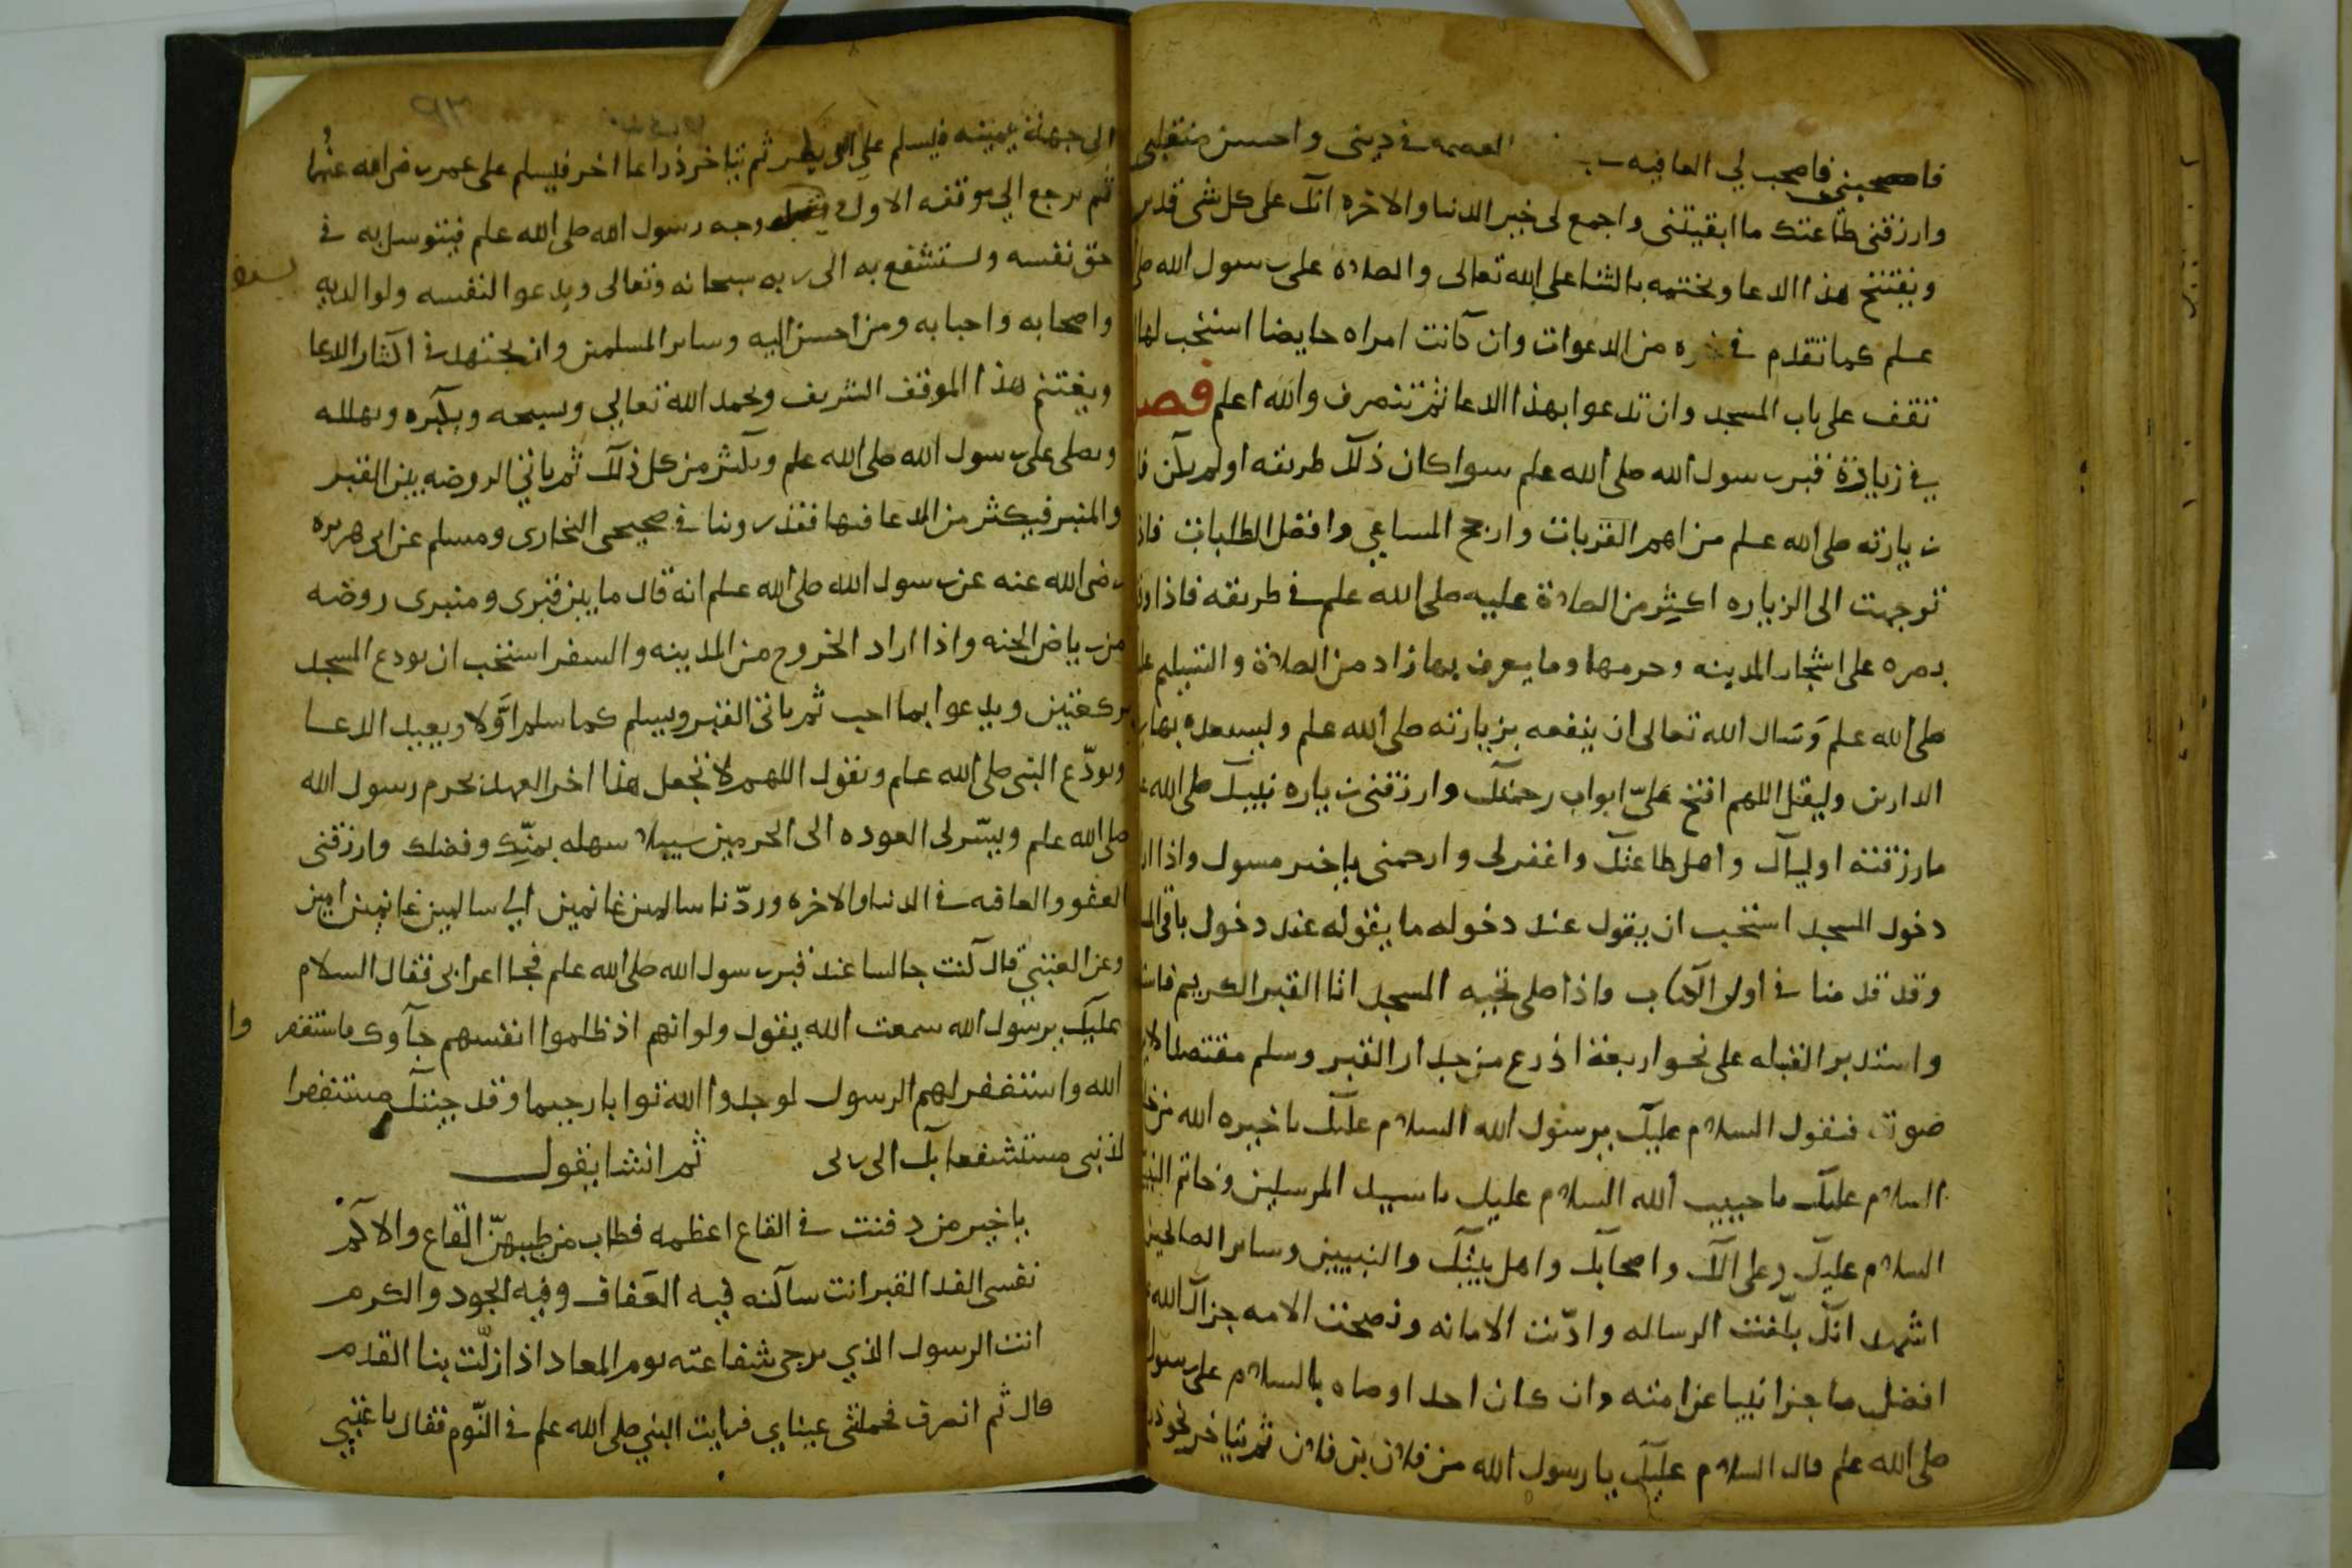 فاصحبني فاصحب لي العافيه في العصمه في ديني واحسن منقلبي
وارزقني طاعتك ما ابقيتني واجمع لي خير الدنيا والاخره انك على كل شي قدير
ويفتتح هذا الدعا ويختمه بالثنا على الله تعالى والصلاة على رسول الله صلى
علم كما تقدم في غيره من الدعوات وان كانت امراه حايضا استحب لها
تقف على باب المسجد وان تدعوا بهذا الدعا ثم تنصرف والله اعلم فصل
في زيارة قبر رسول الله صلى الله علم سوا كان ذلك طريقه اولم يكن فا
زيارته صلى الله علم من اهم القربات واربح المساعي وافضل الطلبات فاذ
توجهت الى الزياره اكثر من الصلاة عليه صلى الله علم في طريقه فاذا وقع
بصره على اشجار المدينه وحرمها وما يعرف بها زاد من الصلاة والتسليم عل
صلى الله علم وسال الله تعالى ان ينفعه بزيارته صلى الله علم وليسعده بها في
الدارين وليقل اللهم افتح عليّ ابواب رحمتك وارزقني زياره نبيك صلى الله ع
ما رزقته اولياك واهل طاعتك واغفر لي وارحمني ياخير مسول واذا ار
دخول المسجد استحب ان يقول عند دخوله ما يقوله عند دخول باقي الم
وقد قدمنا في اول الكتاب واذا صلى تحيه المسجد اتا القبر الكريم فاست
واستدبر القبله على نحو اربعة اذرع من جدار القبر وسلم مقتصدا لاير
صوته فيقول السلام عليك يرسول الله السلام عليك ياخيره الله من خل
السلام عليك ياحبيب الله السلام عليك ياسيد المرسلين وخاتم النبيـ
السلام عليك وعلى الك واصحابك واهل بيتك والنبيين وساير الصالحين
اشهد انك بلّغت الرساله وادّيت الامانه ونصحت الامه جزاك الله ع
افضل ما جزا نبيا عن امته وان كان احد اوصاه بالسلام على رسول
صلى الله علم قال السلام عليك يا رسول الله من فلان بن فلان ثم يتاخر نحو ذر
الى جهة يمينه فيسلم على ابي بكر ثم يتاخر ذراعا اخر فيسلم على عمر رضي الله عنهما
ثم يرجع الي موقفه الاول وجه رسول الله صلى الله علم فيتوسل به في
حق نفسه ويستشفع به الى ربه سبحانه وتعالى ويدعوا لنفسه ولوالديه
واصحابه واحبابه ومن احسن اليه وساير المسلمين وان يجتهد في اكثار الدعا
ويغتنم هذا الموقف الشريف ويحمد الله تعالي ويسبحه ويكبره ويهلله
ويصلي على رسول الله صلى الله علم ويكثر من كل ذلك ثم ياتي الروضه بين القبر
والمنبر فيكثر من الدعا فيها فقد روينا في صحيحي البخاري ومسلم عن ابي هريره
رضي الله عنه عن رسول الله صلى الله علم انه قال ما بين قبري ومنبري روضه
من رياض الجنه واذا اراد الخروج من المدينه والسفر استحب ان يودع المسجد
بركعتين ويدعوا بما احب ثم ياتي القبر ويسلم كما سلم اوّلا ويعيد الدعا
ويودّع النبي صلى الله علم ويقول اللهم لا تجعل هذا اخر العهد بحرم رسول الله
صلى الله علم ويسّر لي العوده الى الحرمين سبيلا سهله بمنّك وفضلك وارزقني
العفو والعافيه في الدنيا والاخره وردّنا سالمين غانمين الي سالمين غانمين امين
وعن العتبي قال كنت جالسا عند قبر رسول الله صلى الله علم فجا اعرابي فقال السلام
عليك يرسول الله سمعت الله يقول ولو انهم اذ ظلموا انفسهم جآوك فاستغفروا
الله واستغفر لهم الرسول لوجدوا الله توابا رحيما وقد جيتك مستغفرا
لذنبي مستشفعا بك الى ربي ثم انشا يقول
ياخير من دفنت في القاع اعظمه فطاب من طيبهنّ القاع والاكم
نفسي الفدا لقبر انت ساكنه فيه العفاف وفيه الجود والكرم
انت الرسول الذي يرجى شفاعته يوم المعاد اذا زلّت بنا القدم
قال ثم انصرف فحملتني عيناي فرايت النبي صلى الله علم في النّوم فقال ياعتبي